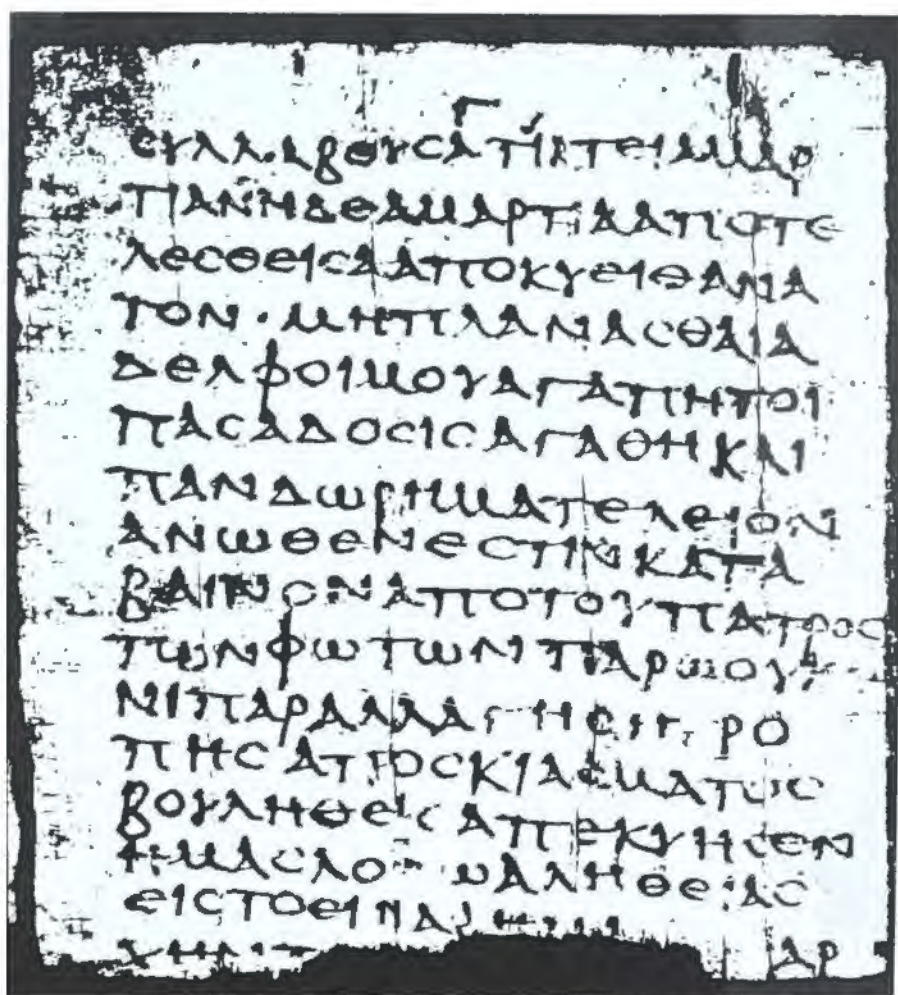 Γ
ϹΥΛΛΑΒΟΥϹΑΤΙΚΤΕΙΑΜΑΡ
ΤΙΑΝΗΔΕΑΜΑΡΤΙΑΑΠΟΤΕ
ΛΕϹΘΕΙϹΑΑΠΟΚΥΕΙΘΑΝΑ
ΤΟΝ·ΜΗΠΛΑΝΑϹΘΑΙΑ
ΔΕΛΦΟΙΜΟΥΑΓΑΠΗΤΟΙ
ΠΑϹΑΔΟϹΙϹΑΓΑΘΗΚΑΙ
ΠΑΝΔΩΡΗΜΑΤΕΛΕΙΟΝ
ΑΝΩΘΕΝΕϹΤΙΝΚΑΤΑ
ΒΑΙΝΟΝΑΠΟΤΟΥΠΑΤΡΟϹ
ΤΩΝΦΩΤΩΝΠΑΡΩΟΥ
ΝΙΠΑΡΑΛΛΑΓΗϹΗΤΡΟ
ΠΗϹΑΠΟϹΚΙΑϹΜΑΤΟϹ
ΒΟΥΛΗΘΕΙϹΑΠΕΚΥΗϹΕΝ
ΗΜΑϹΛΟΓΩΑΛΗΘΕΙΑϹ
ΕΙϹΤΟΕΙΝΑΙ
ΑΡ